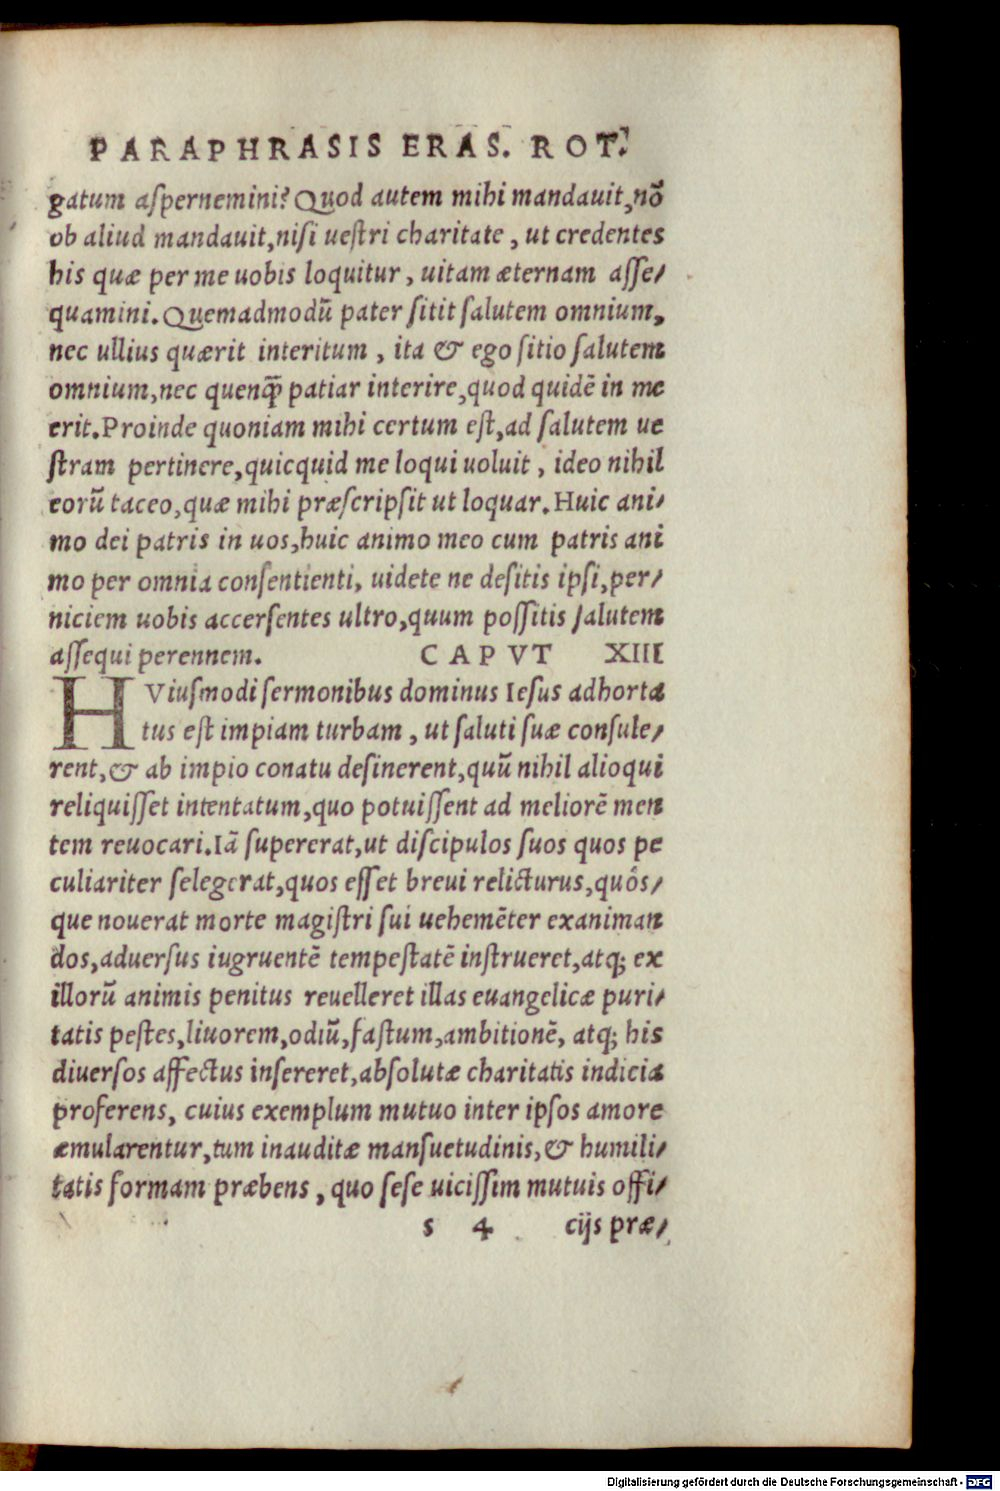 PARAPHRASIS ERAS. ROT.
gatum aſpernemini? Quod autem mihi mandauit, nõ
ob aliud mandauit, niſi ueſtri charitate, ut credentes
his quæ per me uobis loquitur, uitam æternam aſſe/
quamini. Quemadmodũ pater ſitit ſalutem omnium,
nec ullius quærit interitum, ita & ego ſitio ſalutem
omnium, nec quenq̃ patiar interire, quod quidẽ in me
erit. Proinde quoniam mihi certum eſt, ad ſalutem ue
ſtram pertinere, quicquid me loqui uoluit, ideo nihil
eorũ taceo, quæ mihi præſcripſit ut loquar. Huic ani/
mo dei patris in uos, huic animo meo cum patris ani
mo per omnia conſentienti, uidete ne deſitis ipſi, per/
niciem uobis accerſentes ultro, quum poſſitis ſalutem
aſſequi perennem. CAPVT XIII
HViuſmodi ſermonibus dominus Ieſus adhorta
tus eſt impiam turbam, ut ſaluti ſuæ conſule/
rent, & ab impio conatu deſinerent, quũ nihil alioqui
reliquiſſet intentatum, quo potuiſſent ad meliorẽ men
tem reuocari. Iã ſupererat, ut diſcipulos ſuos quos pe
culiariter ſelegerat, quos eſſet breui relicturus, quôs/
que nouerat morte magiſtri ſui uehemẽter exaniman
dos, aduerſus iugruentẽ tempeſtatẽ inſtrueret, atq; ex
illorũ animis penitus reuelleret illas euangelicæ puri/
tatis peſtes, liuorem, odiũ, faſtum, ambitionẽ, atq; his
diuerſos affectus inſereret, abſolutæ charitatis indicia
proferens, cuius exemplum mutuo inter ipſos amore
æmularentur, tum inauditæ manſuetudinis, & humili/
tatis formam præbens, quo ſeſe uiciſſim mutuis offi/
s 4 cijs præ/
Digitalisierung gefördert durch die Deutsche Forschungsgemeinschaft - DFG